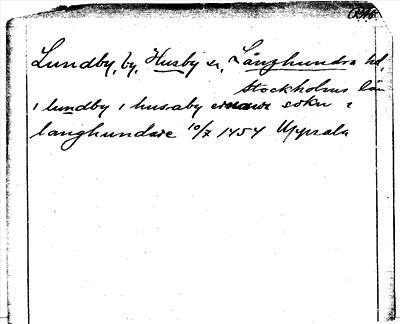 Lundby, by, Husby sn, Långhundra hd,
Stockholms län
i lundby i husaby sokn i
langhundare 10/7 1454 Uppsala